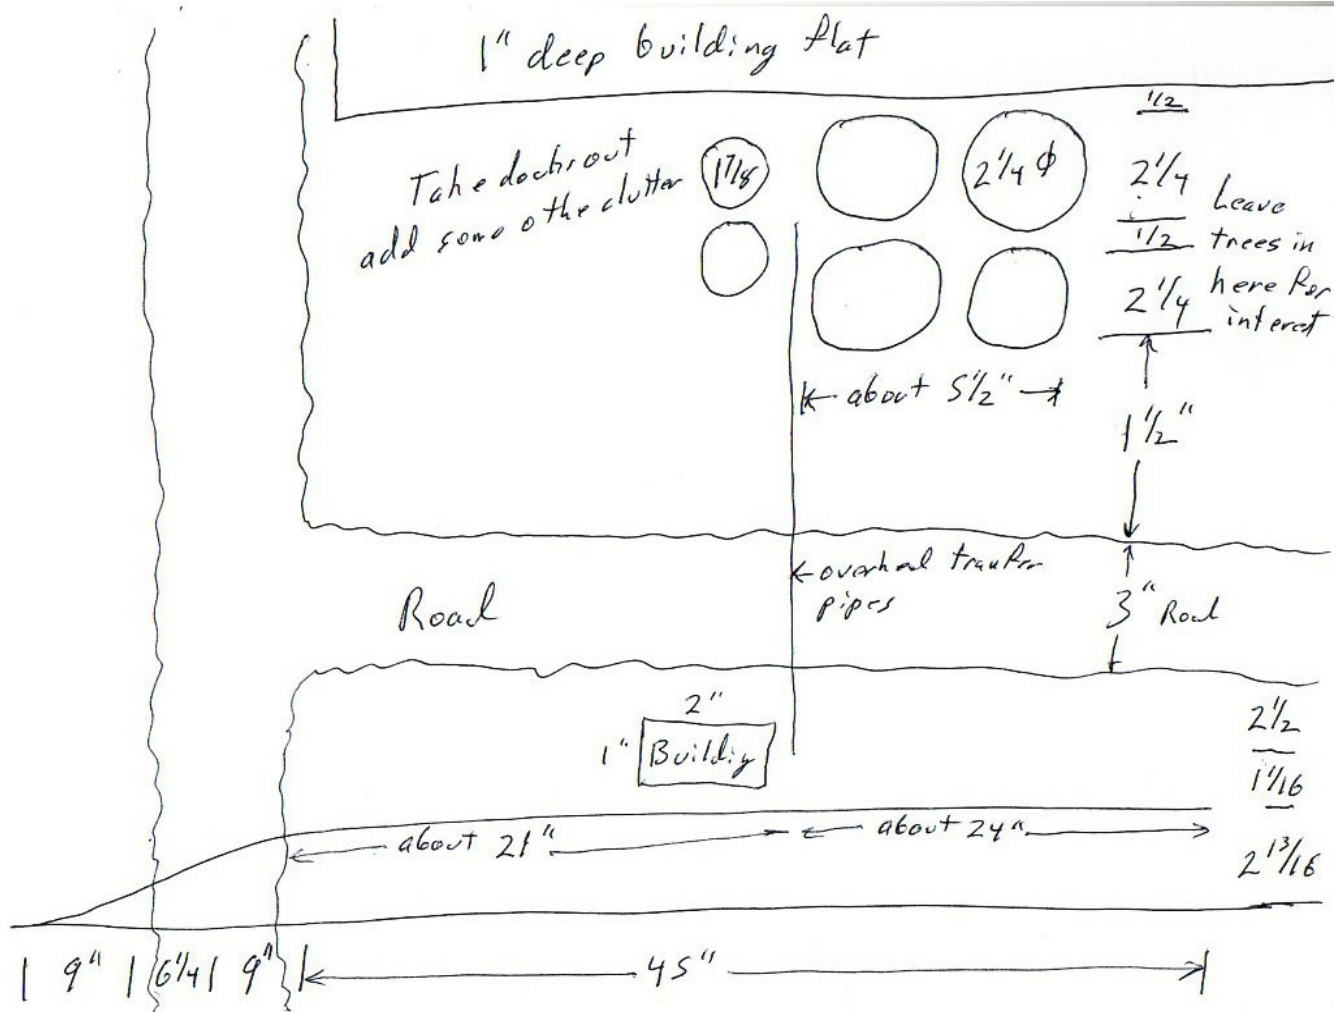 1" deep building flat
1/2
Take out
add some other clutter
1 7/8
2 1/4 ϕ
2 1/4
1/2
2 1/4
Leave
trees in
here for
interest
about 5 1/2"
1 1/2"
overhead
pipes
Road
3" Road
2"
1"
Building
2 1/2
1 1/16
2 13/16
about 21"
about 24"
9"
6 1/4
9"
45"